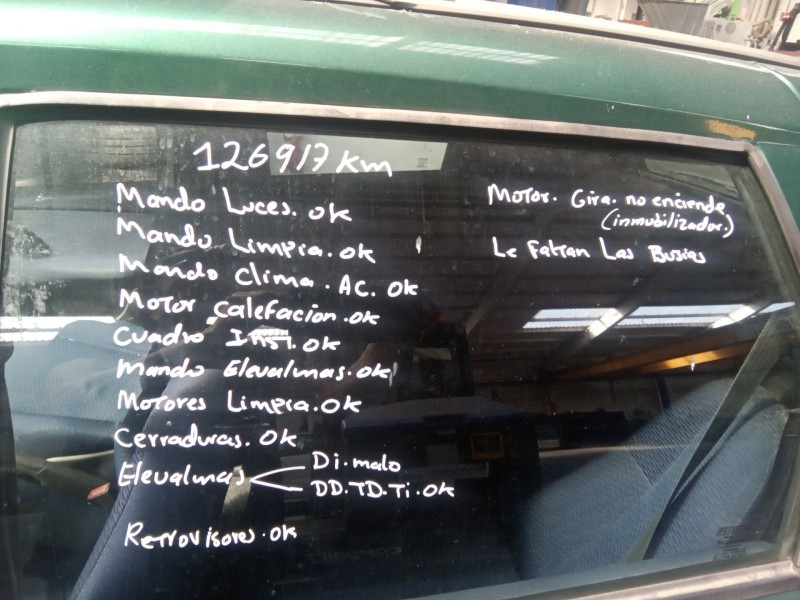 126917 km
Mando Luces. ok
Mando Limpia. ok
Mando Clima. AC. OK
Motor Calefacion. ok
Cuadro Inst. ok
Mando Elevalunas. ok
Motores Limpia. ok
Cerraduras. OK
Elevalunas
Di. malo
DD. TD. Ti. OK
Retrovisores. ok
Motor. Gira. no enciende
(inmobilizador.)
Le Faltan Las Bujias